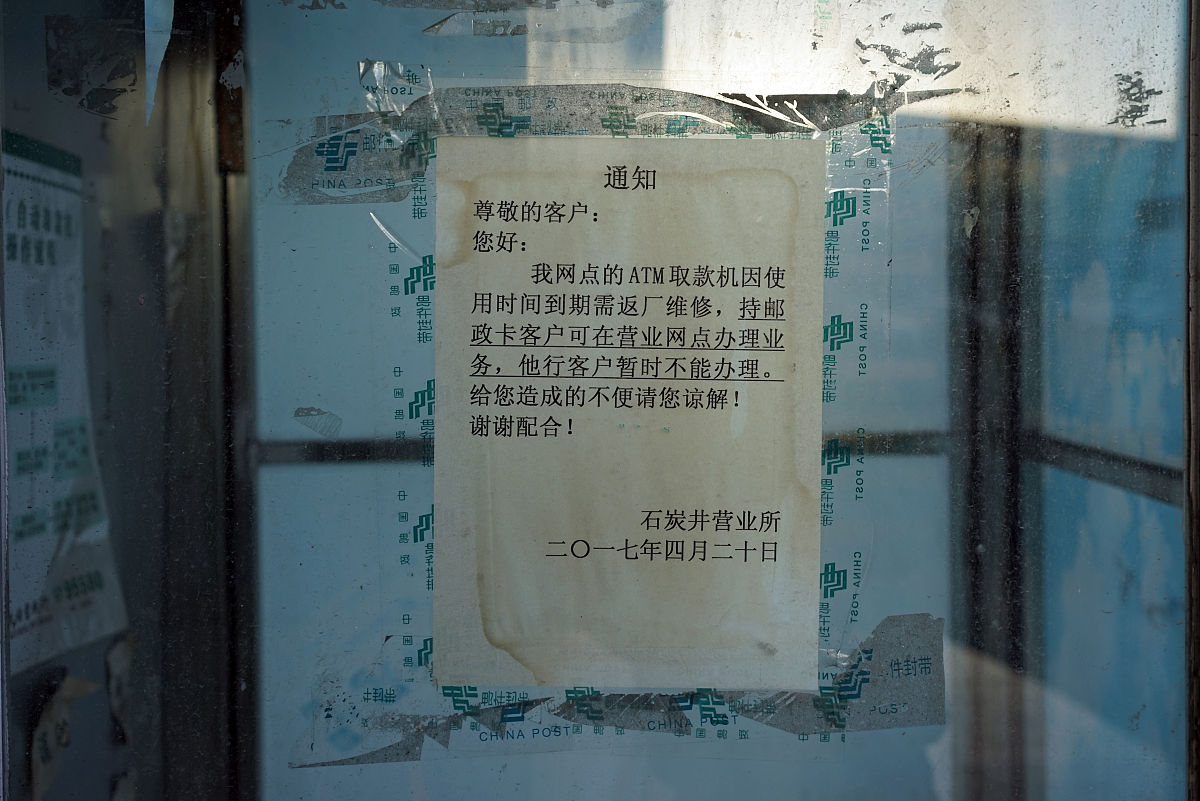 通知
尊敬的客户：
您好：
我网点的ATM取款机因使
用时间到期需返厂维修，持邮
政卡客户可在营业网点办理业
务，他行客户暂时不能办理。
给您造成的不便请您谅解！
谢谢配合！
石炭井营业所
二〇一七年四月二十日
CHINA POST
CHINA POST
CHINA POST
CHINA POST
CHINA POST
CHINA POST
CHINA POST
CHINA POST
件封带